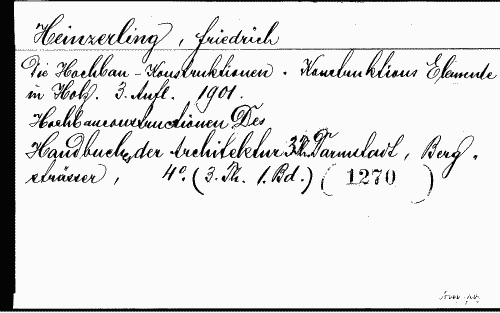 Heinzerling, Friedrich
Die Hochbau-Konstruktionen. Konstruktions Elemente
in Holz. 3. Aufl. 1901.
Hochbauconstructionen Des
Handbuchs der Architektur 3. Th. Darmstadt, Berg-
strässer, 4º. (3. Th. 1. Bd.) (1270)